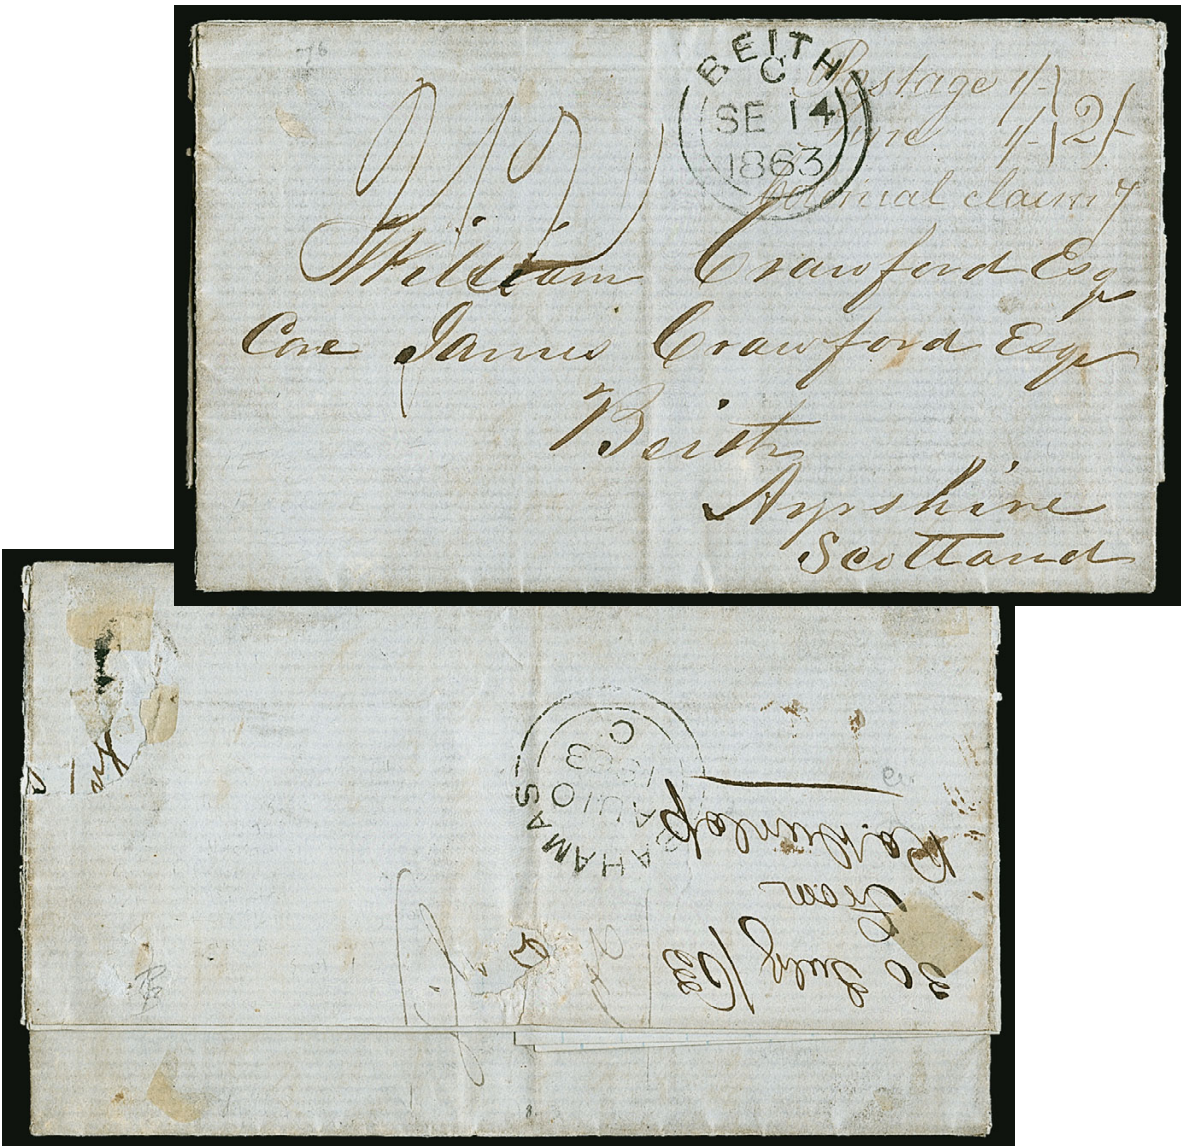 BEITH
C
SE 14
1863
Postage 1/-
1/- 2/-
Colonial claim
William Crawford Esq
Care James Crawford Esqr
Beith
Ayrshire
Scotland
BAHAMAS
AU 10
1863
C
30 July /63
From
Ro. Dunlop